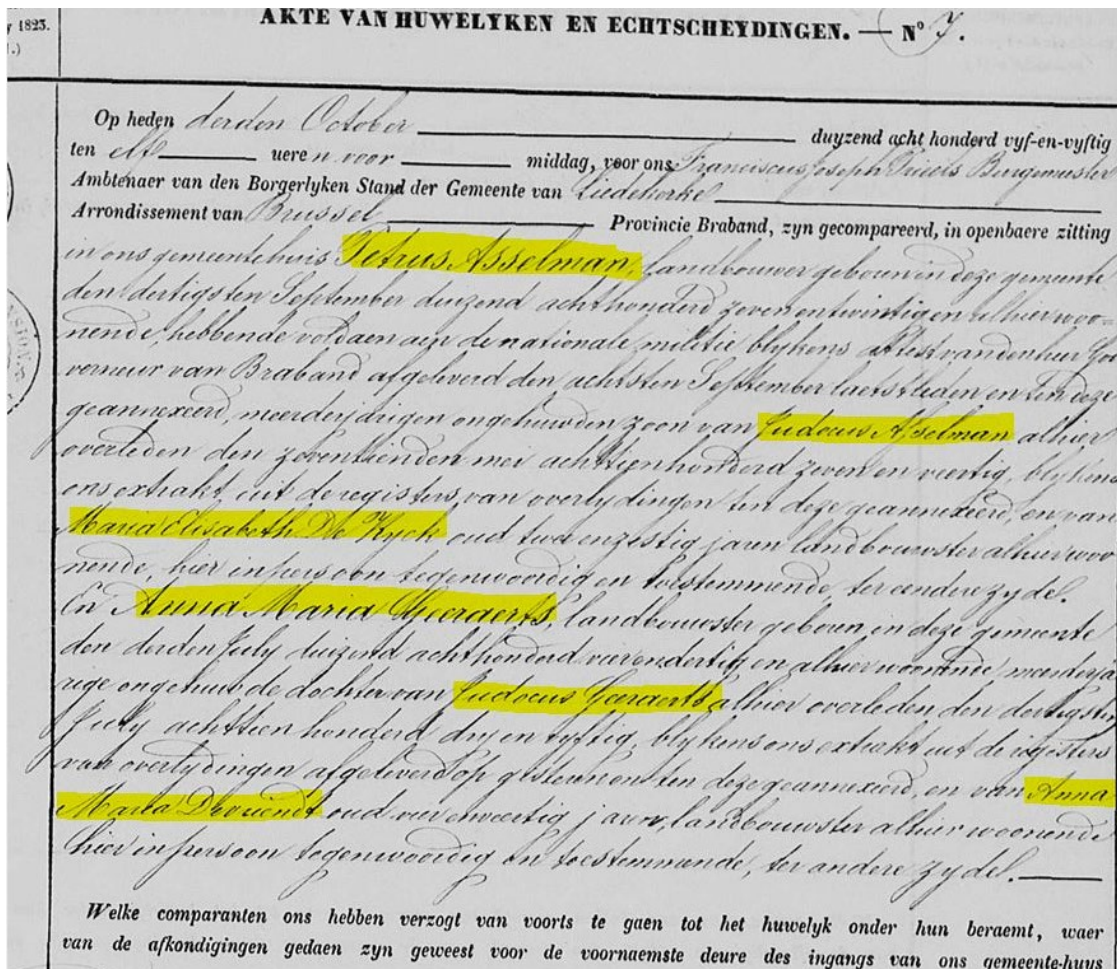 r 1823.
1.)
AKTE VAN HUWELYKEN EN ECHTSCHEYDINGEN. — N° 7.
NSION
Op heden derden October duyzend acht honderd vyf-en-vyftig
ten elf ueren voor middag, voor ons Franciscus Joseph Burgemeester
Ambtenaer van den Borgerlyken Stand der Gemeente van Liedekerke
Arrondissement van Brussel Provincie Braband, zyn gecompareerd, in openbaere zitting
in ons gemeentehuis Petrus Asselman, landbouwer geboren in deze gemeente
den dertigsten September duizend achthonderd zevenentwintig en alhier woo-
nende, hebbende voldaen aen de nationale militie blykens attest van den heer Gou
verneur van Braband afgeleverd den achtsten September laetstleden en ten deze
geannexeerd, meerderjarigen ongehuwden zoon van Judocus Asselman alhier
overleden den zeventienden mei achttienhonderd zeven en veertig, blykens
ons extrakt uit de registers van overlydingen ten deze geannexeerd, en van
Maria Elisabeth De Ryck oud twee en zestig jaren landbouwster alhier woo
nende, hier in persoon tegenwoordig en toestemmende, ter eendere zyde.
En Anna Maria Geeraerts, landbouwster geboren in deze gemeente
den derden July duizend achthonderd vierendertig en alhier woonende meerderja
rige ongehuwde dochter van Judocus Geeraerts alhier overleden den dertigsten
July achttien honderd dry en vyftig, blykens ons extrakt uit de registers
van overlydingen afgeleverd op gisteren en ten deze geannexeerd, en van Anna
Maria Devriendt oud vier enveertig jaren, landbouwster alhier woonende
hier in persoon tegenwoordig en toestemmende, ter andere zydel.
Welke comparanten ons hebben verzogt van voorts te gaen tot het huwelyk onder hun beraemt, waer
van de afkondigingen gedaen zyn geweest voor de voornaemste deure des ingangs van ons gemeente-huys